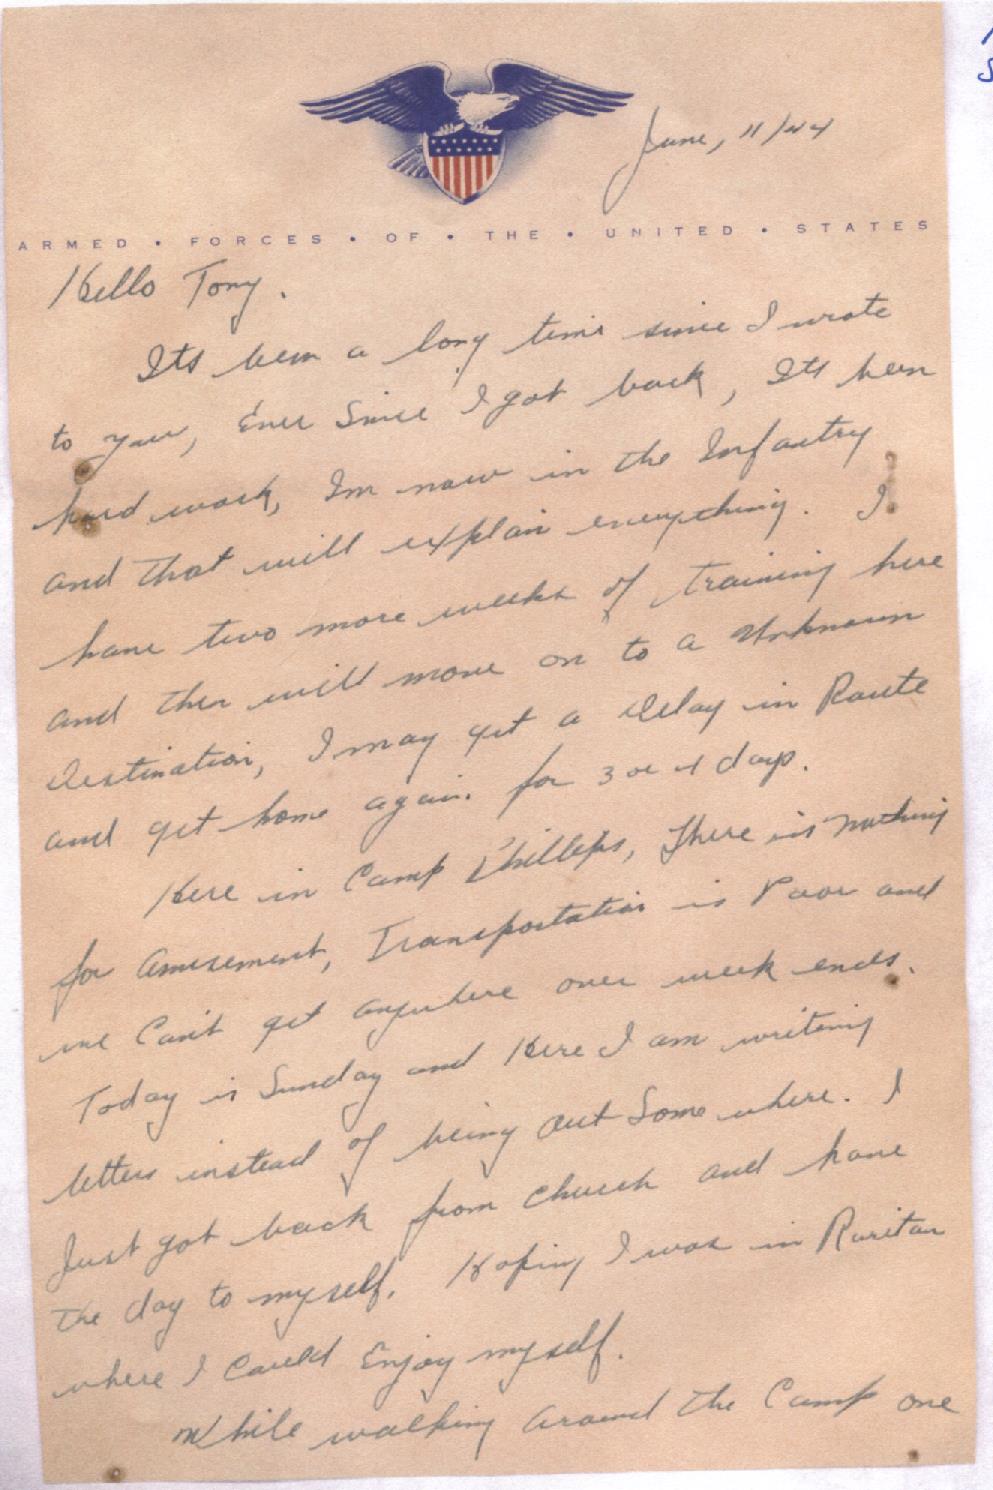 June, 11/44
ARMED • FORCES • OF • THE • UNITED • STATES
Hello Tony.
Its been a long time since I wrote
to you, Ever Since I got back, Its been
hard work, Im now in the Infantry
and that will explain everything. I
have two more weeks of training here
and then will move on to a Unknown
Destination, I may get a Delay in Route
and get home again. for 3 or 4 days.
Here in Camp Phillips, There is nothing
for amusement, Transportation is Poor and
we Can't get anywhere over week ends.
Today is Sunday and Here I am writing
letters instead of being out Some where. I
Just got back from church and have
the day to myself. Hoping I was in Raritan
where I Could Enjoy myself.
While walking around the Camp one